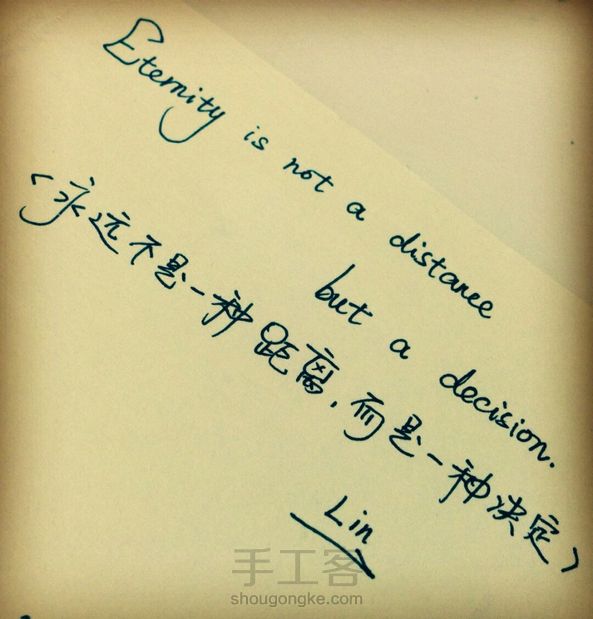 Eternity is not a distance
but a decision.
（永远不是一种距离，而是一种决定）
Lin
手工客
shougongke.com